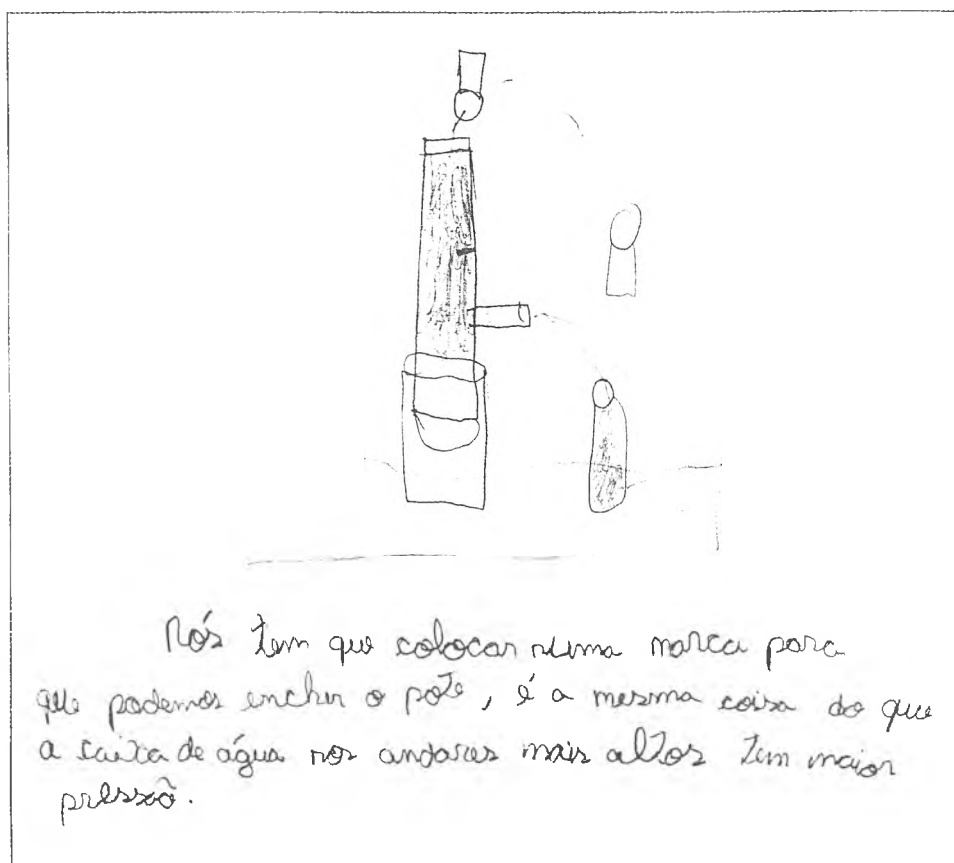 Nós tem que colocar numa marca para
que podemos encher o pote, é a mesma coisa do que
a caixa de água nos andares mais altos tem maior
pressão.